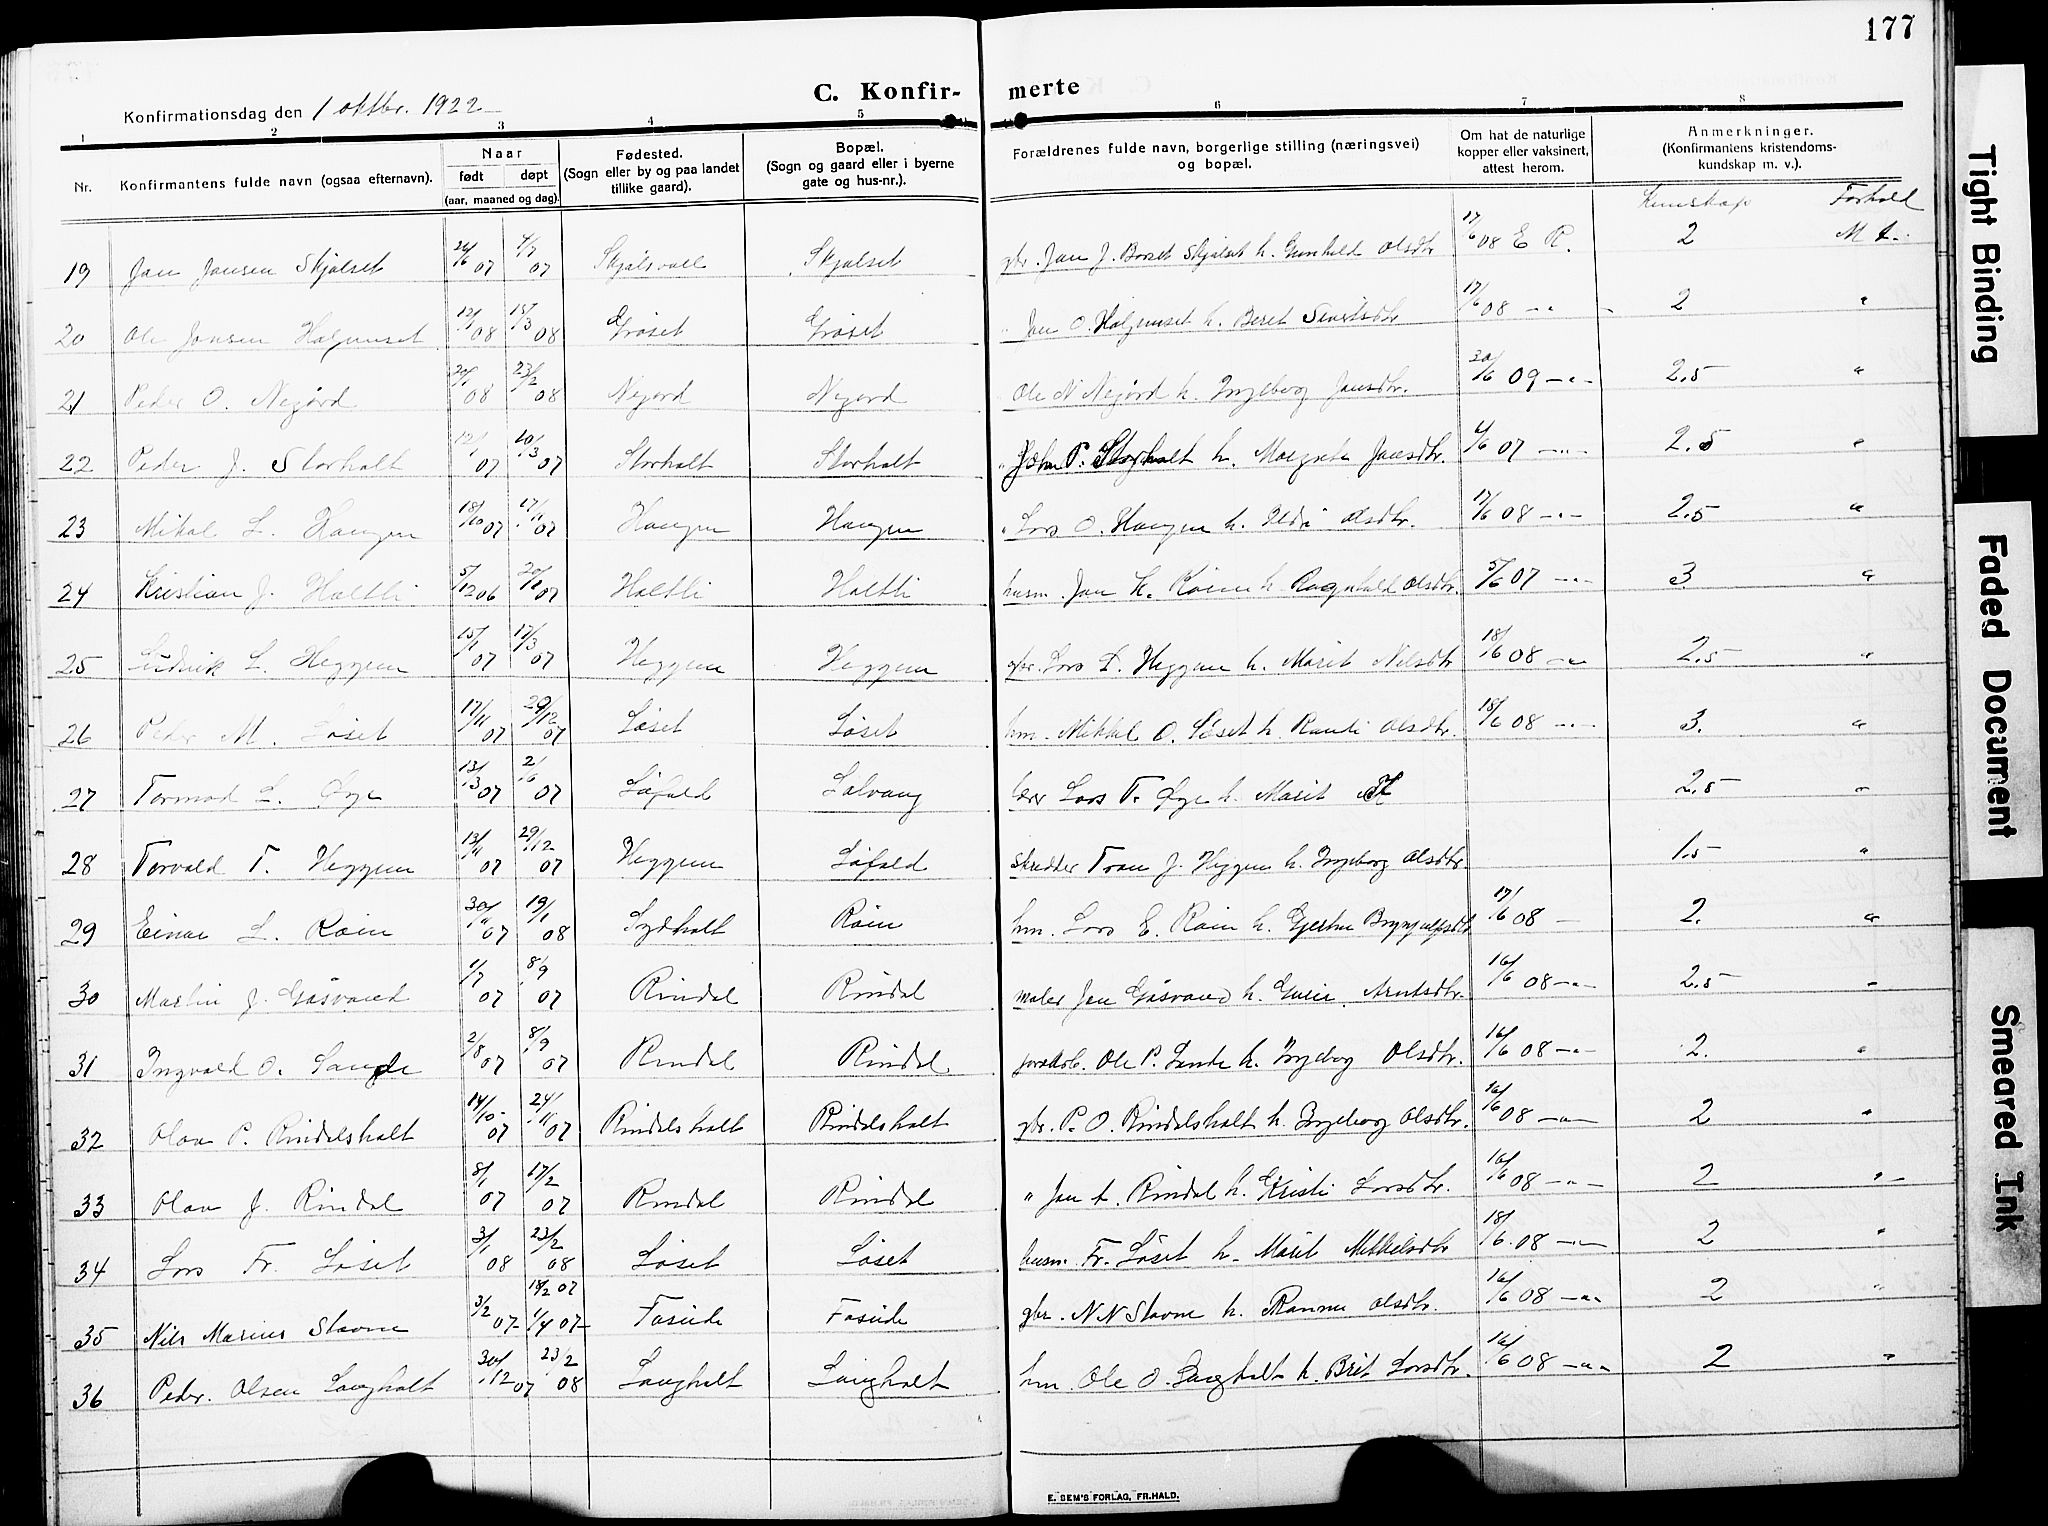 177
C. Konfirmerte
Konfirmationsdag den 1 oktbr. 1922
1 2 3 4 5 6 7 8
Nr. Konfirmantens fulde navn (ogsaa efternavn). Naar født døpt (aar, maaned og dag). Fødested. (Sogn eller by og paa landet tillike gaard). Bopæl. (Sogn og gaard eller i byerne gate og hus-nr.). Forældrenes fulde navn, borgerlige stilling (næringsvei) og bopæl. Om hat de naturlige kopper eller vaksinert, attest herom. Anmerkninger. (Konfirmantens kristendomskundskap m. v.).
Kunskap Forhold
19 Jon Jonsen Skjølset 26/6 07 4/7 07 Skjølsvold Skjølset gbr. Jon J. Børset Skjølset h. Gunhild Olsdtr 17/6 08 E R. 2 M t.
20 Ole Jonsen Holgunset 12/1 08 15/3 08 Grøset Grøset " Jon O. Holgunset h. Beret Sivertsdtr 17/6 08 -"- 2 "
21 Peder O. Nejørd 20/1 08 23/2 08 Nejord Nejord " Ole N Nejørd h. Ingeborg Jonsdtr. 30/6 09 -"- 2.5 "
22 Peder J. Storholt 12/1 07 10/3 07 Storholt Storholt " John P. Storholt h. Margrete Jonsdtr. 4/6 07 -"- 2.5 "
23 Mikal L. Haugen 18/10 07 17/11 07 Haugen Haugen " Lars O. Haugen h. Olsdtr. 17/6 08 -"- 2.5 "
24 Kristian J. Holtli 5/12 06 20/1 07 Holtli Holtli husm. Jon H. Røen h. Ragnhild Olsdtr. 5/6 07 -"- 3 "
25 L. Heggem 15/1 07 17/3 07 Heggem Heggem gbr. Lars L. Heggem h. Marit Nilsdtr 18/6 08 -"- 2.5 "
26 Peder M. Løset 17/11 07 29/12 07 Løset Løset hm. Mikkel O. Løset h. Randi Olsdtr. 18/6 08 -"- 3. "
27 Tormod L. Øye 13/3 07 2/6 07 Løfald Solvang lær Lars T. Øye h. Marit 2.5 "
28 Torvald T. Heggem 13/11 07 29/12 07 Heggem Løfald skrædder Tron J. Heggem h. Ingeborg Olsdtr 1.5 "
29 Einar L. Røen 30/11 07 19/1 08 Sydholt Røen hm. Lars E. Røen h. Gjertru Brynjulfsdtr 17/6 08 - 2. "
30 Martin J. Gåsvand 1/7 07 8/9 07 Rindal Rindal maler Jon Gåsvand h. Guri Arntsdtr. 16/6 08 -"- 2.5 "
31 Ingvald O. Lande 2/8 07 8/9 07 Rindal Rindal Ole P. Lande h. Ingeborg Olsdtr. 16/6 08 -"- 2. "
32 Olav P. Rindalsholt 14/10 07 24/11 07 Rindalsholt Rindalsholt gbr. P. O. Rindalsholt h. Ingeborg Olsdtr. 16/6 08 -"- 2 "
33 Olav J. Rindal 8/1 07 17/2 07 Rindal Rindal " Jon A. Rindal h. Kristi Larsdtr. 16/6 08 -"- 2 "
34 Lars Fr. Løset 3/1 08 23/2 08 Løset Løset husm. Fr. Løset h. Marit Mikkelsdtr 18/6 08 -"- 2 "
35 Nils Marius Stavne 3/2 07 18/2 07 1/4 07 Foseide Foseide gbr. N N Stavne h. Olsdtr. 16/6 08 -"- 2 "
36 Peder Olsen Langholt 30/12 07 23/2 08 Langholt Langholt hm. Ole O. Langholt h. Brit Larsdtr. 16/6 08 -"- 2 "
E. SEM'S FORLAG, FR.HALD.
Tight Binding
Faded Document
Smeared Ink